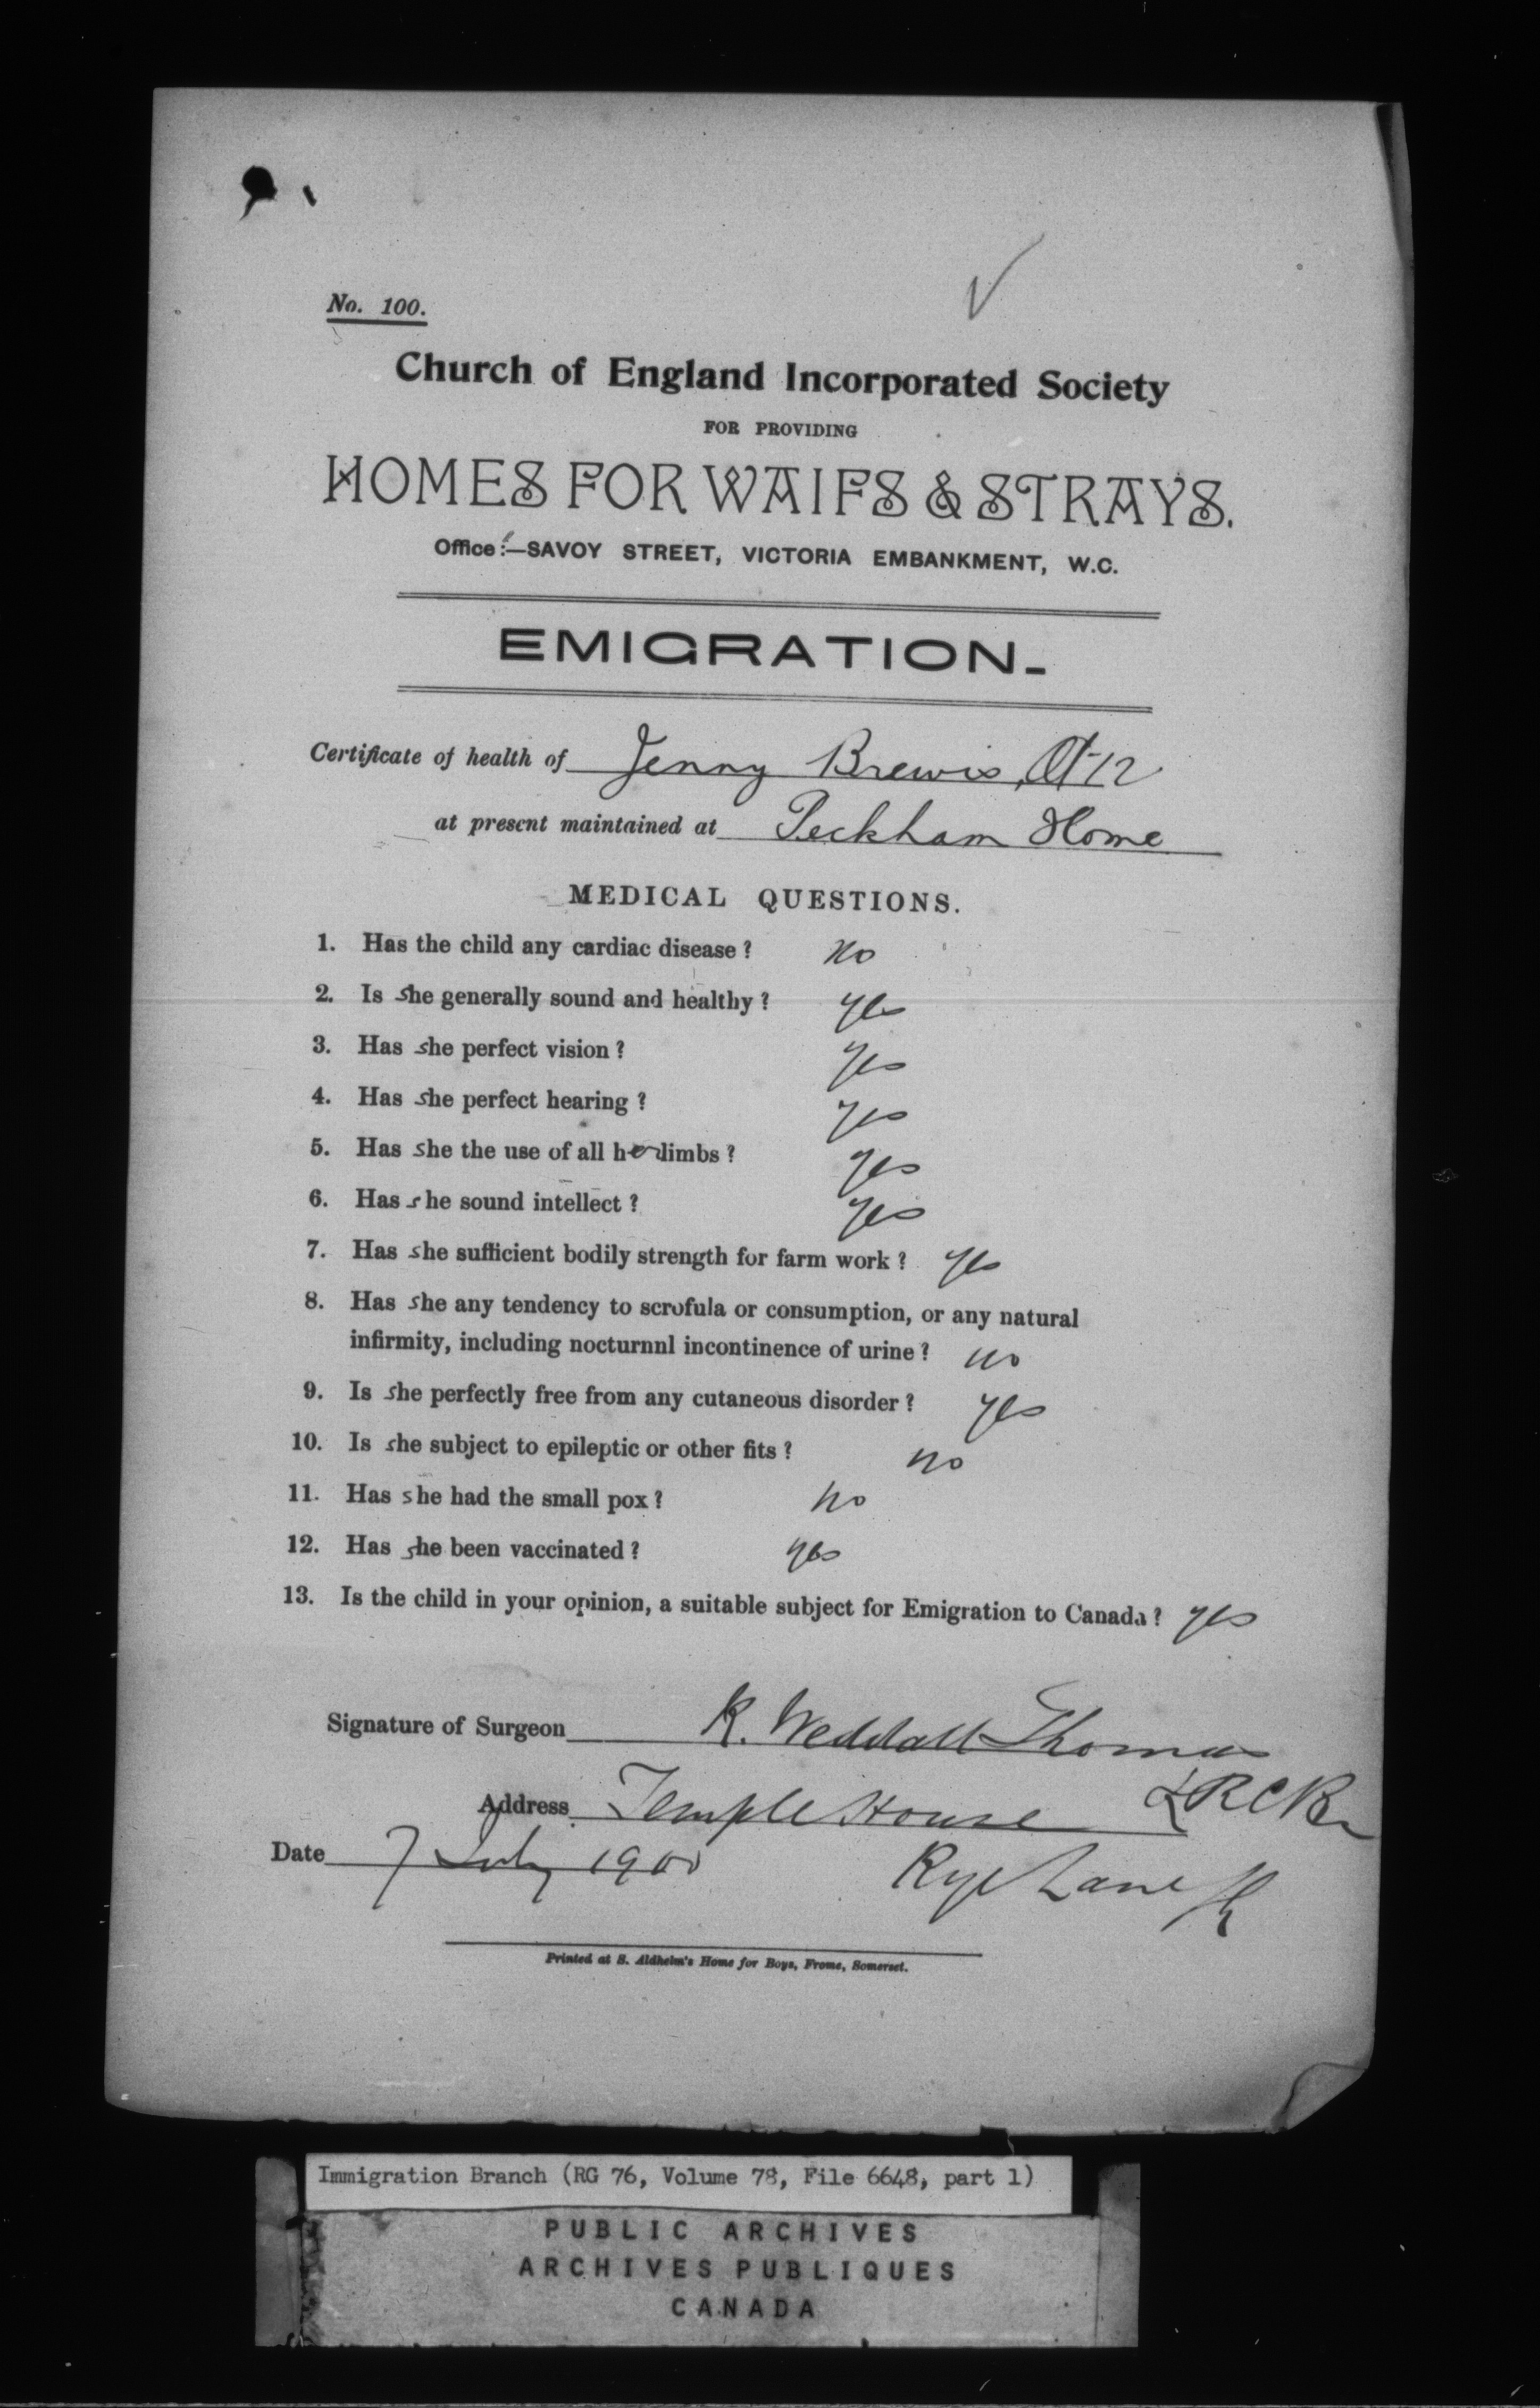 No. 100.
Church of England Incorporated Society
FOR PROVIDING
HOMES FOR WAIFS & STRAYS.
Office:—SAVOY STREET, VICTORIA EMBANKMENT, W.C.
EMIGRATION.
Certificate of health of Jenny Brewis, 12
at present maintained at Peckham Home
MEDICAL QUESTIONS.
1. Has the child any cardiac disease? no
2. Is she generally sound and healthy? yes
3. Has she perfect vision? yes
4. Has she perfect hearing? yes
5. Has she the use of all her limbs? yes
6. Has she sound intellect? yes
7. Has she sufficient bodily strength for farm work? yes
8. Has she any tendency to scrofula or consumption, or any natural
infirmity, including nocturnnl incontinence of urine? no
9. Is she perfectly free from any cutaneous disorder? yes
10. Is she subject to epileptic or other fits? no
11. Has she had the small pox? no
12. Has she been vaccinated? yes
13. Is the child in your opinion, a suitable subject for Emigration to Canada? yes
Signature of Surgeon K. Weddall Thomas
Address Temple House
Date 7 July 1900 Rye Lane
Printed at S. Aldhelm's Home for Boys, Frome, Somerset.
Immigration Branch (RG 76, Volume 78, File 6648, part 1)
PUBLIC ARCHIVES
ARCHIVES PUBLIQUES
CANADA